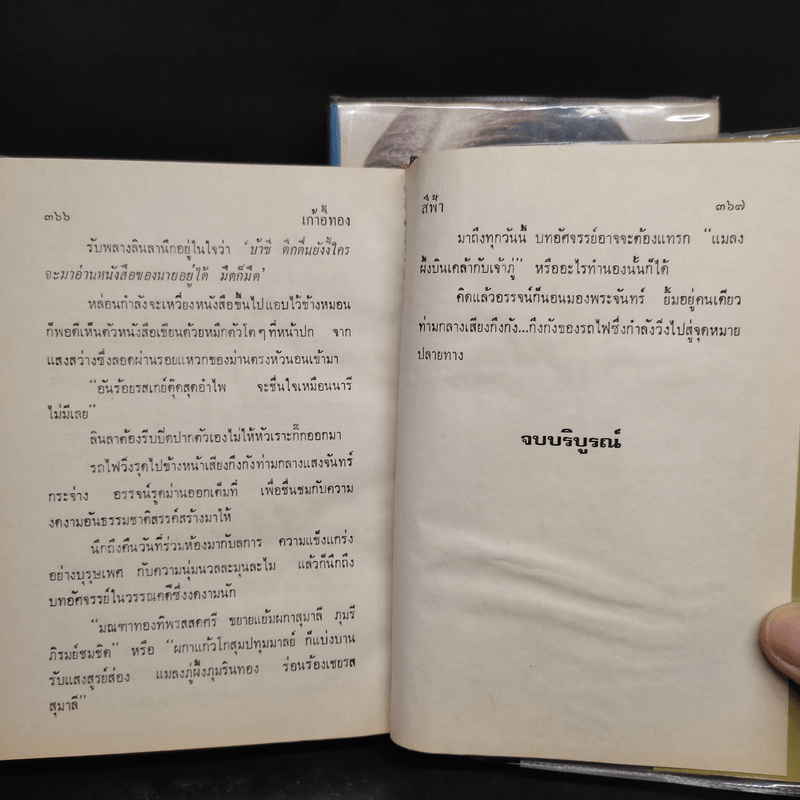 ๓๖๖ เก้าอี้ทอง
รับพลางลินลานึกอยู่ในใจว่า ‘บ้าชี ดึกดื่นยังงี้ใคร
จะมาอ่านหนังสือของนายอยู่ได้ มืดก็มืด’
หล่อนกำลังจะเหวี่ยงหนังสือขึ้นไปแอบไว้ข้างหมอน
ก็พอดีเห็นตัวหนังสือเขียนด้วยหมึกตัวโตๆที่หน้าปก จาก
แสงสว่างซึ่งลอดผ่านรอยแหวกของม่านตรงหัวนอนเข้ามา
“อันร้อยรสเกย์ตุ๊ดสุดอำไพ จะชื่นใจเหมือนนารี
ไม่มีเลย”
ลินลาต้องรีบปิดปากตัวเองไม่ให้หัวเราะกิ๊กออกมา
รถไฟวิ่งรุดไปข้างหน้าเสียงกึงกังท่ามกลางแสงจันทร์
กระจ่าง อรรจน์รูดม่านออกเต็มที่ เพื่อชื่นชมกับความ
งดงามอันธรรมชาติสรรค์สร้างมาให้
นึกถึงคืนวันที่ร่วมห้องมากับลการ ความแข็งแกร่ง
อย่างบุรุษเพศ กับความนุ่มนวลละมุนละไม แล้วก็นึกถึง
บทอัศจรรย์ในวรรณคดีซึ่งงดงามนัก
“มณฑาทองทิพรสสดศรี ขยายแย้มผกาสุมาลี ภุมรี
ภิรมย์ชมชิด” หรือ “ผกาแก้วโกสุมปทุมมาลย์ ก็แบ่งบาน
รับแสงสูรย์ส่อง แมลงภู่ผึ้งภุมรินทอง ร่อนร้องเชยรส
สุมาลี”
สีฟ้า ๓๖๗
มาถึงทุกวันนี้ บทอัศจรรย์อาจจะต้องแทรก “แมลง
ผึ้งบินเคล้ากับเจ้าภู่” หรืออะไรทำนองนั้นก็ได้
คิดแล้วอรรจน์ก็นอนมองพระจันทร์ ยิ้มอยู่คนเดียว
ท่ามกลางเสียงกึงกัง...กึงกังของรถไฟซึ่งกำลังวิ่งไปสู่จุดหมาย
ปลายทาง
จบบริบูรณ์